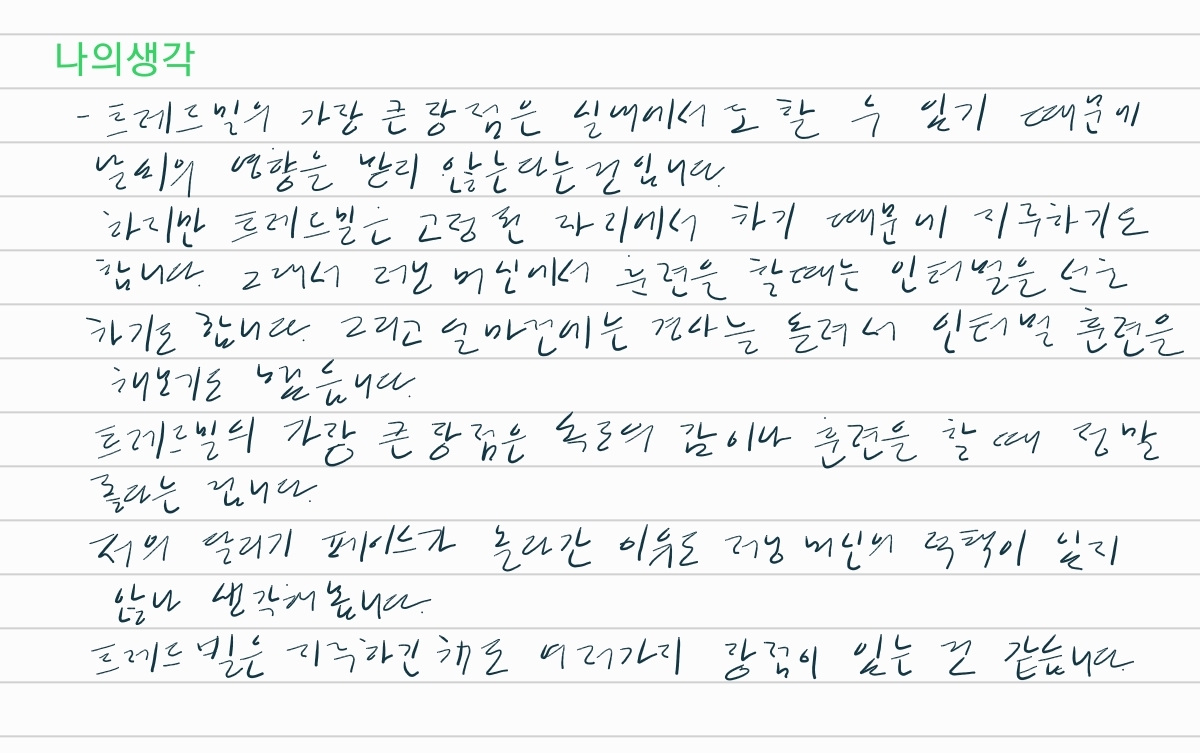 나의생각
- 트레드밀의 가장 큰 장점은 실내에서도 할 수 있기 때문에
날씨의 영향을 받지 않는다는 건입니다.
하지만 트레드밀은 고정된 자리에서 하기 때문에 지루하기도
합니다. 그래서 러닝 머신에서 훈련을 할때는 인터벌을 선호
하기도 합니다. 그리고 얼마전에는 경사를 올려서 인터벌 훈련을
해보기도 했습니다.
트레드밀의 가장 큰 장점은 속도의 감이나 훈련을 할 때 정말
좋다는 겁니다.
저의 달리기 페이스가 올라간 이유도 러닝 머신의 덕택이 있지
않나 생각해봅니다.
트레드밀은 지루하긴 해도 여러가지 장점이 있는 것 같습니다.